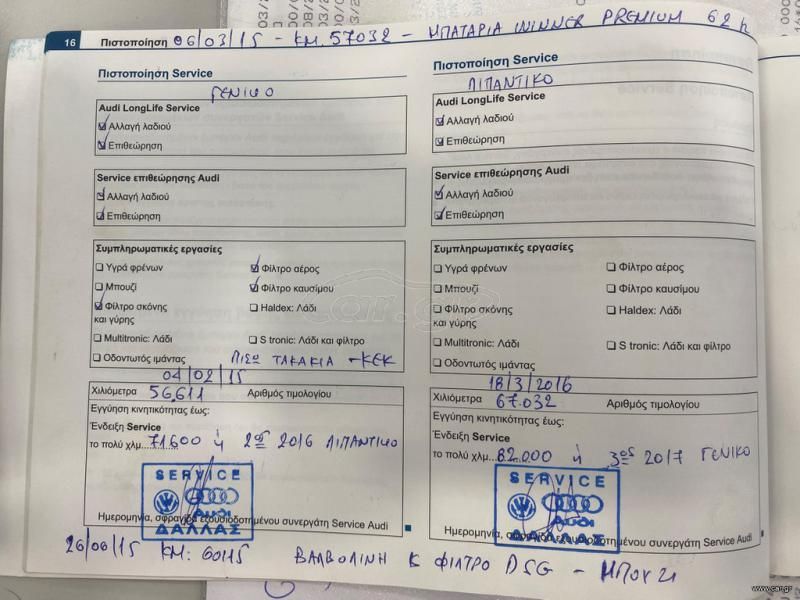 16 Πιστοποίηση 06/03/15 - KM. 57032 - ΜΠΑΤΑΡΙΑ WINNER PREMIUM 62h
Πιστοποίηση Service
ΓΕΝΙΚΟ
Audi LongLife Service
Αλλαγή λαδιού
Επιθεώρηση
Service επιθεώρησης Audi
Αλλαγή λαδιού
Επιθεώρηση
Συμπληρωματικές εργασίες
Υγρά φρένων
Φίλτρο αέρος
Μπουζί
Φίλτρο καυσίμου
Φίλτρο σκόνης
και γύρης
Haldex: Λάδι
Multitronic: Λάδι
S tronic: Λάδι και φίλτρο
Οδοντωτός ιμάντας ΠΙΣΩ ΤΑΚΑΚΙΑ - ΚΕΚ
04/02/15
Χιλιόμετρα 56.611 Αριθμός τιμολογίου
Εγγύηση κινητικότητας έως:
Ένδειξη Service
το πολύ χλμ. 71600 ή 2ος 2016 ΛΙΠΑΝΤΙΚΟ
SERVICE
Audi
ΔΑΛΛΑΣ
Ημερομηνία, σφραγίδα εξουσιοδοτημένου συνεργάτη Service Audi
Πιστοποίηση Service
ΛΙΠΑΝΤΙΚΟ
Audi LongLife Service
Αλλαγή λαδιού
Επιθεώρηση
Service επιθεώρησης Audi
Αλλαγή λαδιού
Επιθεώρηση
Συμπληρωματικές εργασίες
Υγρά φρένων
Φίλτρο αέρος
Μπουζί
Φίλτρο καυσίμου
Φίλτρο σκόνης
και γύρης
Haldex: Λάδι
Multitronic: Λάδι
S tronic: Λάδι και φίλτρο
Οδοντωτός ιμάντας
18/3/2016
Χιλιόμετρα 67.032 Αριθμός τιμολογίου
Εγγύηση κινητικότητας έως:
Ένδειξη Service
το πολύ χλμ. 82.000 ή 3ος 2017 ΓΕΝΙΚΟ
SERVICE
Audi
ΔΑΛΛΑΣ
Ημερομηνία, σφραγίδα εξουσιοδοτημένου συνεργάτη Service Audi
26/06/15 KM: 60115 ΒΑΛΒΟΛΙΝΗ Κ ΦΙΛΤΡΟ DSG - ΜΠΟΥΖΙ
car.gr
www.car.gr